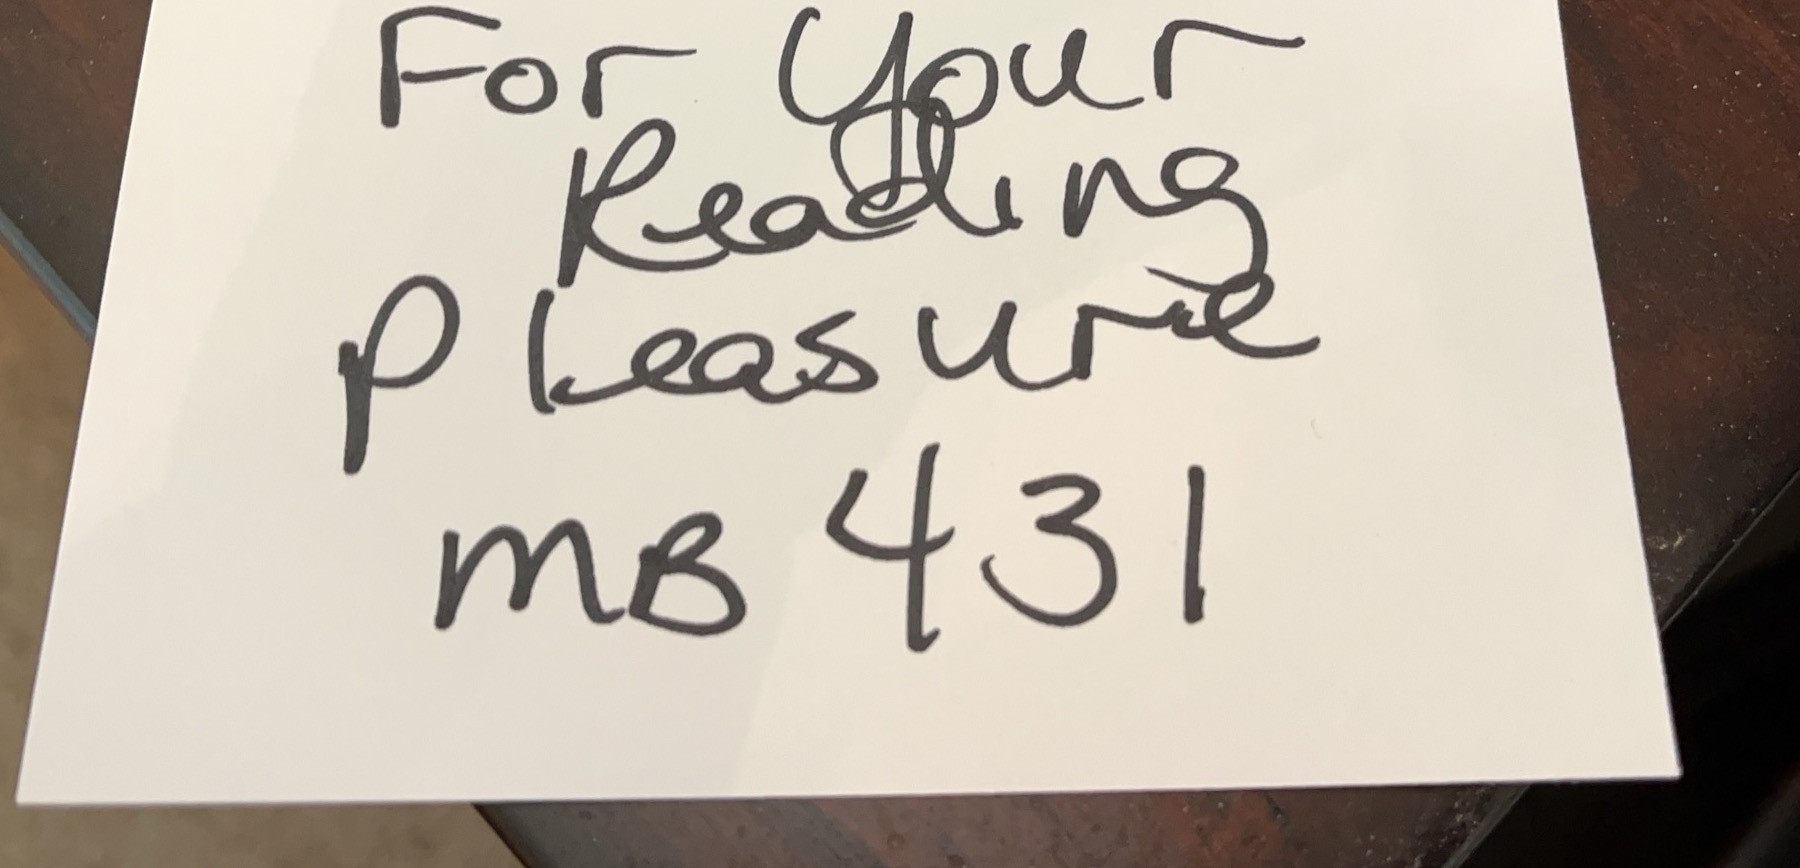 For Your
Reading
Pleasure
MB 431